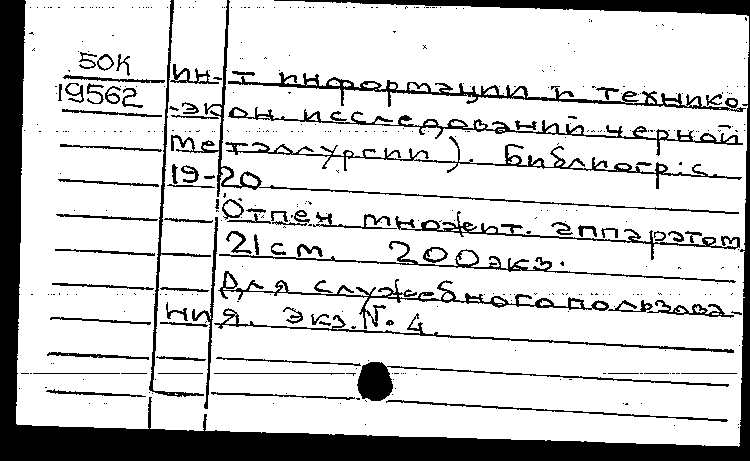 50К
19562
ин-т информации и технико-
-экон. исследований черной
металлургии). Библиогр: с.
19-20.
Отпеч. множит. аппаратом
21 см. 200 экз.
Для служебного пользова-
ния. Экз. № 4.